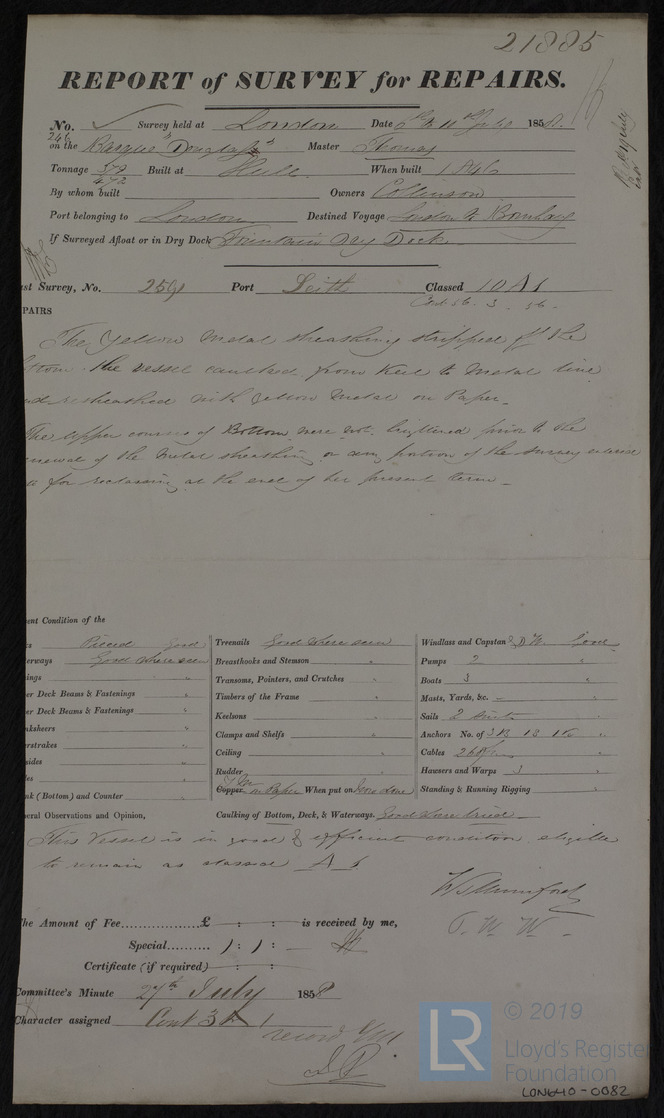 21885
REPORT of SURVEY for REPAIRS.
No. 246 Survey held at London Date July 1858
on the Barque "Douglass" Master Thomas
Tonnage 378 472 Built at Hull When built 1846
By whom built Owners Collenson
Port belonging to London Destined Voyage London to Bombay
If Surveyed Afloat or in Dry Dock Fountain Dry Dock
st Survey, No. Port Leith Classed 10 A1
3. 56.
PAIRS
The Yellow Metal sheathing stripped off the
ttom. the vessel caulked from Keel to Metal line
resheathed with yellow Metal on Paper.
The upper courses of Bottom were not brightened prior to the
newal of the Metal sheathing or any portion of the survey entered
for reclassing at the end of her present term
ent Condition of the
s Pieced Good
erways Good where seen
ings "
er Deck Beams & Fastenings "
er Deck Beams & Fastenings "
nksheers "
erstrakes "
sides "
es "
nk (Bottom) and Counter "
Treenails Good where seen
Breasthooks and Stemson "
Transoms, Pointers, and Crutches "
Timbers of the Frame "
Keelsons "
Clamps and Shelfs "
Ceiling "
Rudder "
Copper on Paper When put on Now done
Windlass and Capstan Good
Pumps 2 "
Boats 3 "
Masts, Yards, &c. "
Sails 2 suits "
Anchors No. of 3B 1S 1K "
Cables "
Hawsers and Warps 3 "
Standing & Running Rigging "
eral Observations and Opinion,
Caulking of Bottom, Deck, & Waterways. Good where tried
This Vessel is in good & efficient condition eligible
to remain as classed A 1
The Amount of Fee..................£ : : is received by me,
Special.......... 1 : 1 : —
Certificate (if required) : :
Committee's Minute 27th July 1858
Character assigned Cont 3 A 1
record YM
© 2019
LR
Lloyd's Register
Foundation
LON640-0082